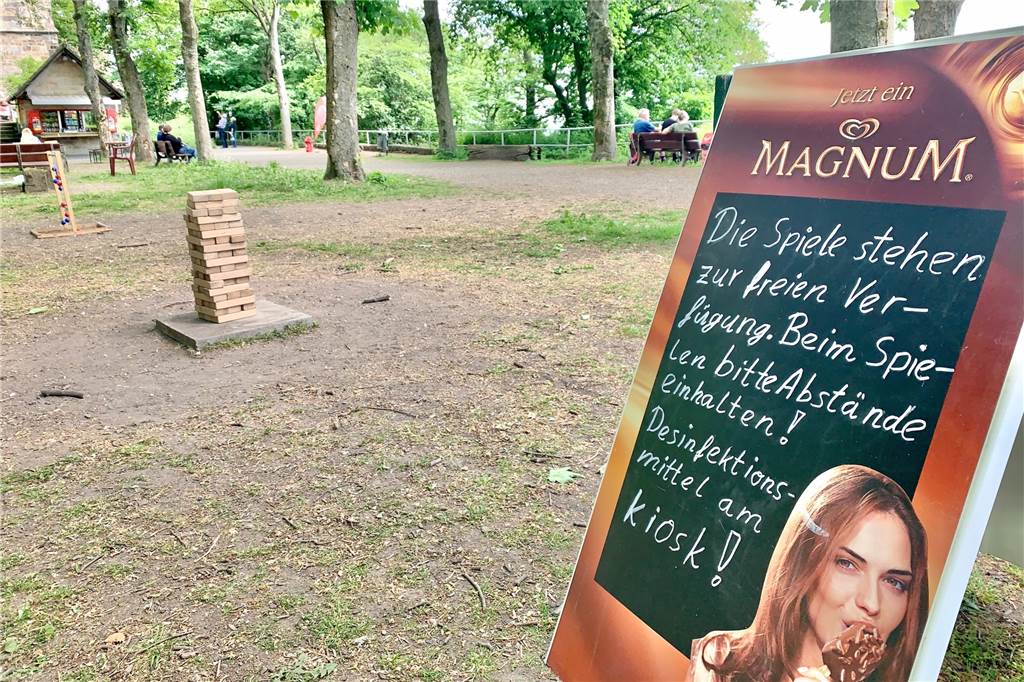 Jetzt ein
MAGNUM®
Die Spiele stehen
zur freien Ver–
fügung. Beim Spie–
len bitte Abstände
einhalten!
Desinfektions-
mittel am
kiosk!